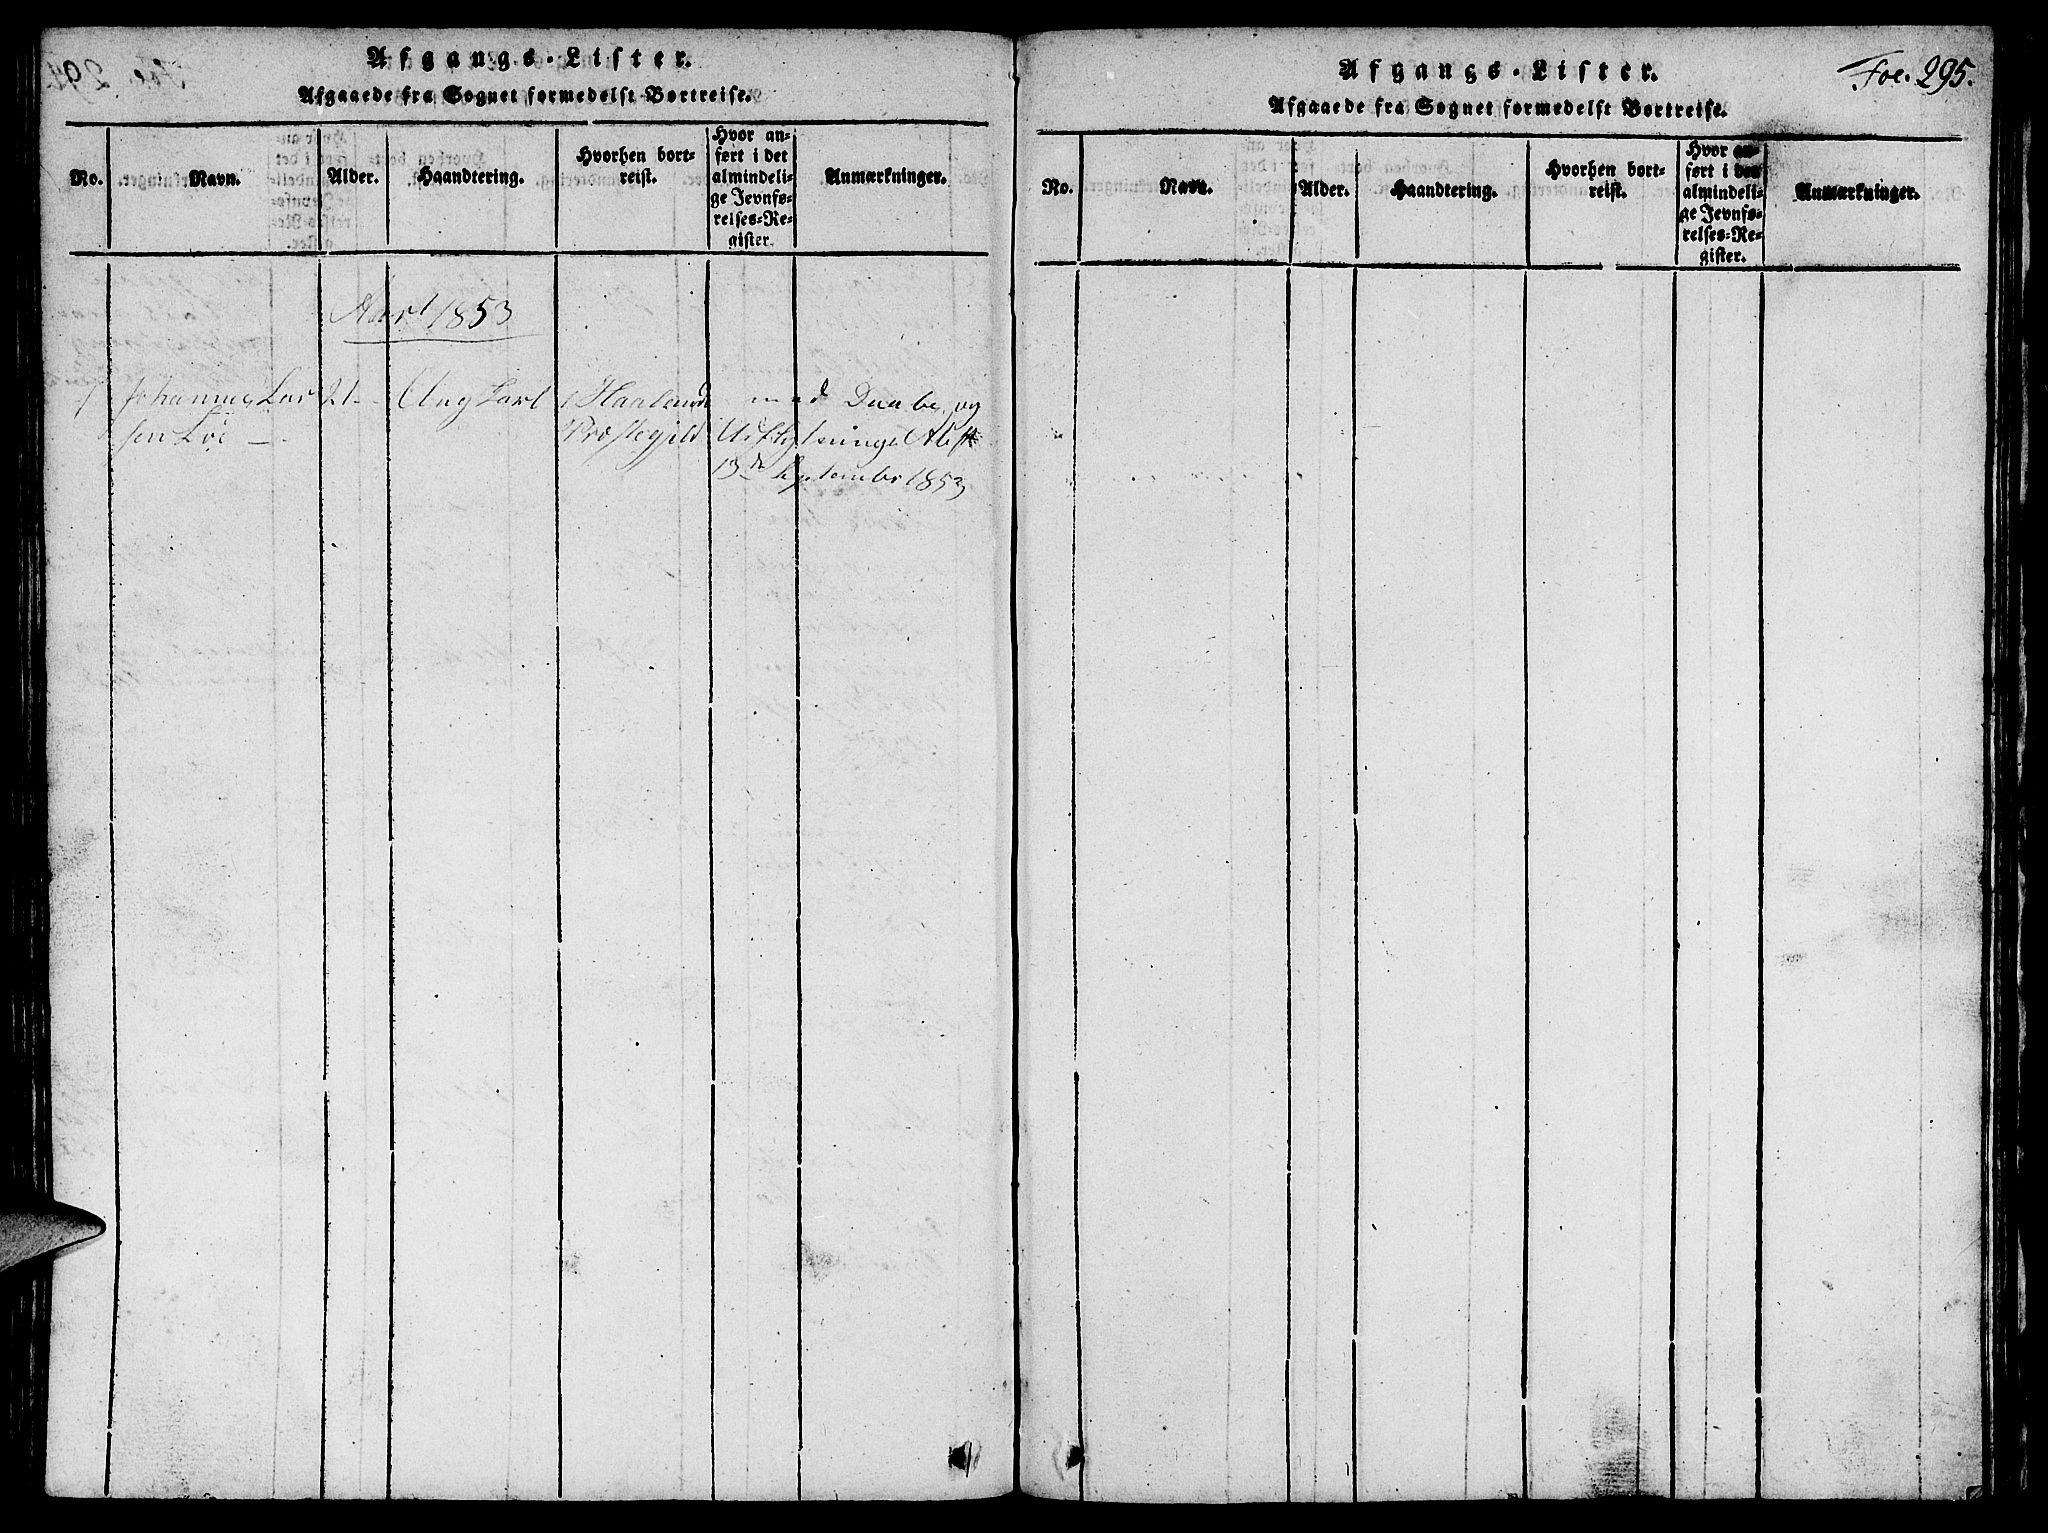 Afgangs-Lister.
Afgaaede fra Sognet formedelst Bortreise.
No.
Navn.
Alder.
Haandtering.
Hvorhen bort-
reist.
Hvor an-
ført i det
almindeli-
ge Jevnfø-
relses-Re-
gister.
Anmærkninger.
Aart 1853
1 Johannes Lar 21 - Ung Karl Haalands med Daabs og
sen Loe - Præstegjeld Udflytnings Att
13de September 1853
Afgangs-Lister.
Fol. 295.
Afgaaede fra Sognet formedelst Bortreise.
No.
Navn.
Alder.
Haandtering.
Hvorhen bort-
reist.
Hvor an-
ført i det
almindeli-
ge Jevnfø-
relses-Re-
gister.
Anmærkninger.